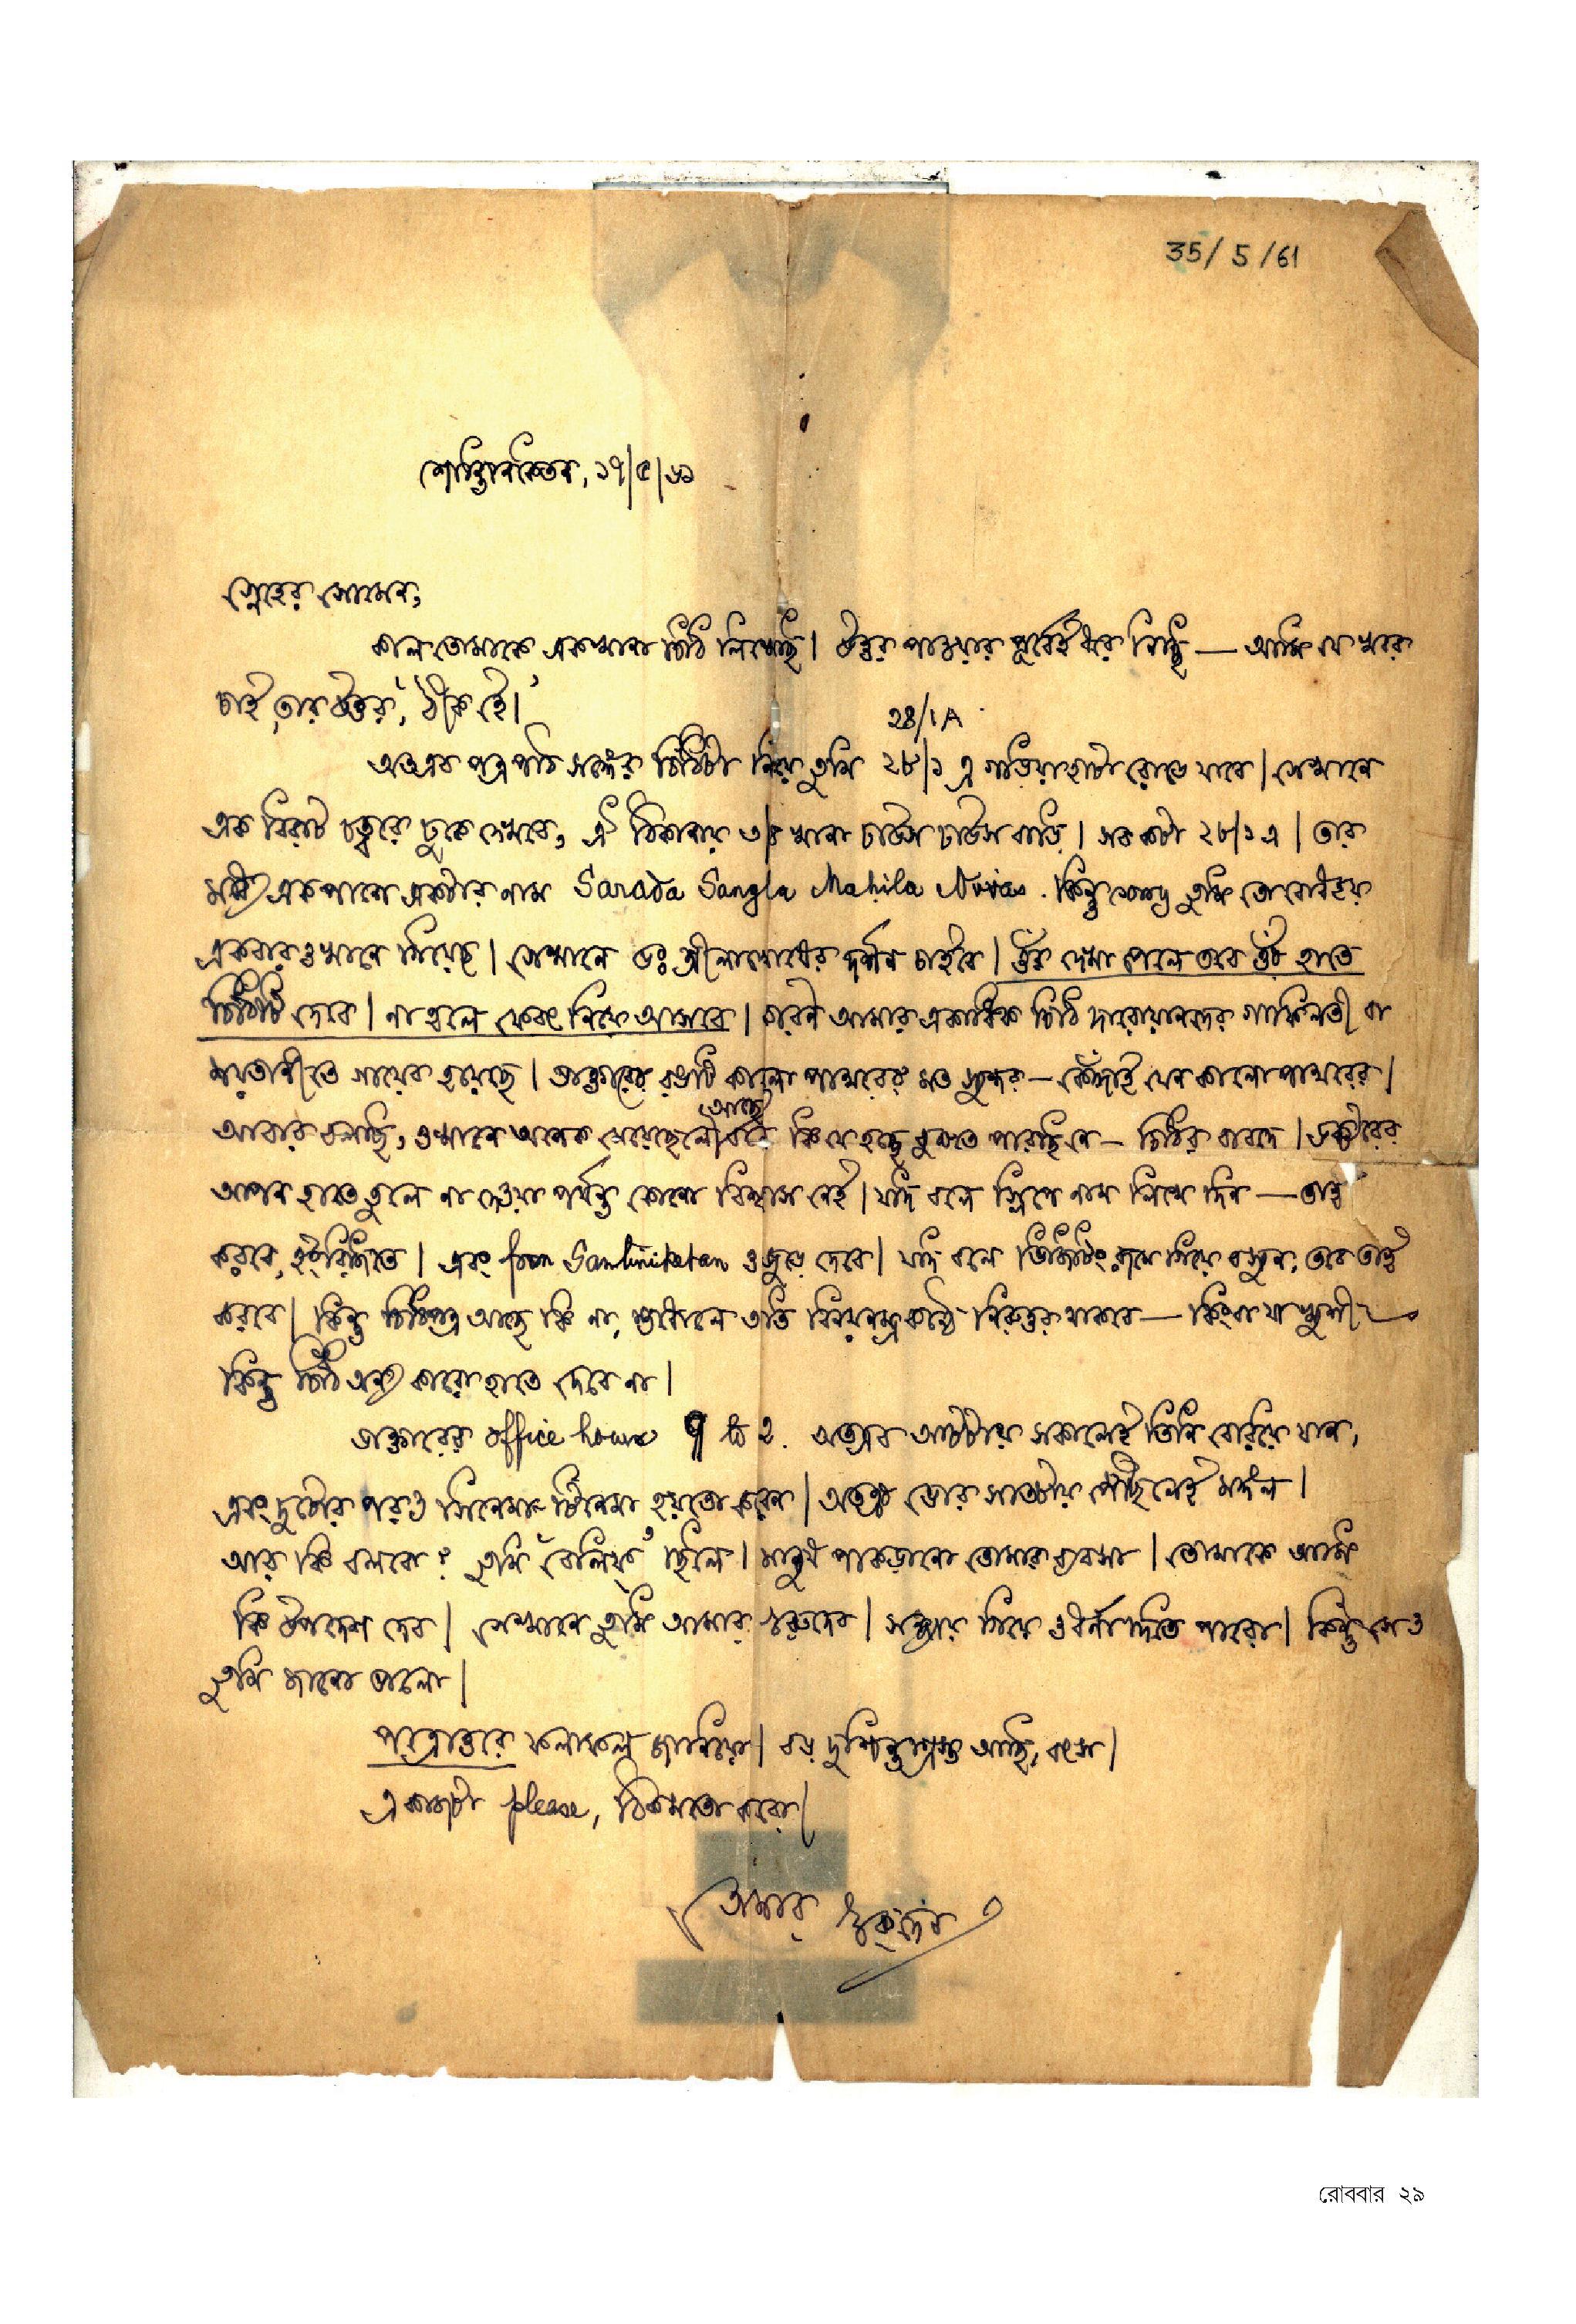 35/5/61
শান্তিনিকেতন, ১৭/৫/৬১
স্নেহের সোমেন,
কাল তোমাকে একখানা চিঠি লিখেছি। উত্তর পাওয়ার পূর্বেই ধরে নিচ্ছি — আমি যে খবর
চাই তার উত্তর, 'ঠিক হৈ।'
28/1A
অতএব পত্রপাঠ সঙ্গের চিঠিটা নিয়ে তুমি ২৮/১ এ গড়িয়াহাটা রোডে যাবে। সেখানে
এক বিরাট চত্বরে ঢুকে দেখবে, ঐ ঠিকানায় ৩/৪ খানা ঢাউস ঢাউস বাড়ি। সব কটা ২৮/১ এ। তার
মধ্যে একপাশে একটার নাম Sarada Sangha Mahila Nivas. কিন্তু তুমি তো বোধহয়
একবার ওখানে গিয়েছ। সেখানে ডঃ দর্শন চাইবে। ওঁর দেখা পেলে তবে ওঁর হাতে
চিঠিটি দেবে। না হলে ফেরৎ নিয়ে আসবে। কারণ আমার একাধিক চিঠি দারোয়ানদের গাফিলতী বা
শয়তানীতে গায়েব হয়েছে। ডাক্তারের রঙটি কালো পাথরের মত সুন্দর — কোঁদাই যেন কালো পাথরের।
আছে
আবার বলছি, ওখানে অনেক মেয়েছেলে বলে কি যে হচ্ছে বুঝতে পারছিনে — চিঠির বাবদে। ডক্টরের
আপন হাতে তুলে না দেওয়া পর্যন্ত কোনো বিশ্বাস নেই। যদি বলে স্লিপে নাম লিখে দিন — তাই
করবে, ইংরিজিতে। এবং from Santiniketan ও জুড়ে দেবে। যদি বলে ভিজিটিং রুমে গিয়ে বসুন, তবে তাই
করবে। কিন্তু চিঠিপত্র আছে কি না, শুধোলে অতি বিনয়নম্র কণ্ঠে নিরুত্তর থাকবে — কিংবা যা খুশী
কিন্তু চিঠি অন্য কারো হাতে দেবে না।
ডাক্তারের office hours 9 to 2. অতএব আটটায় সকালেই তিনি বেরিয়ে যান,
এবং দুটোর পরও সিনেমা-টিনেমা হয়তো করেন। অতএব ভোর সাতটায় পৌঁছলেই মঙ্গল।
আর কি বলবো? তুমি 'বেলিফ' ছিলে। মানুষ পাকড়ানো তোমার ব্যবসা। তোমাকে আমি
কি উপদেশ দেব। সেখানে তুমি আমার গুরুদেব। সন্ধ্যায় গিয়ে ও ধর্না দিতে পারো। কিন্তু সে ও
তুমি জানো ভালো।
পত্রোত্তরে ফলাফল জানিয়ো। বড় দুশ্চিন্তাগ্রস্ত আছি, বৎস।
এ কাজটা please, ঠিকমতো করো।
তোমার গুরুদেব
রোববার ২৯